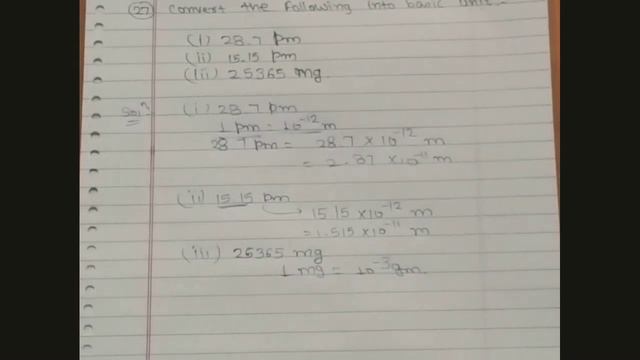 27 Convert the following into basic unit-
(i) 28.7 pm
(ii) 15.15 pm
(iii) 25365 mg
Solⁿ (i) 28.7 pm
1 pm = 10⁻¹² m
28.7 pm = 28.7 × 10⁻¹² m
= 2.87 × 10⁻¹¹ m
(ii) 15.15 pm
→ 15.15 × 10⁻¹² m
= 1.515 × 10⁻¹¹ m
(iii) 25365 mg
1 mg = 10⁻³ gm